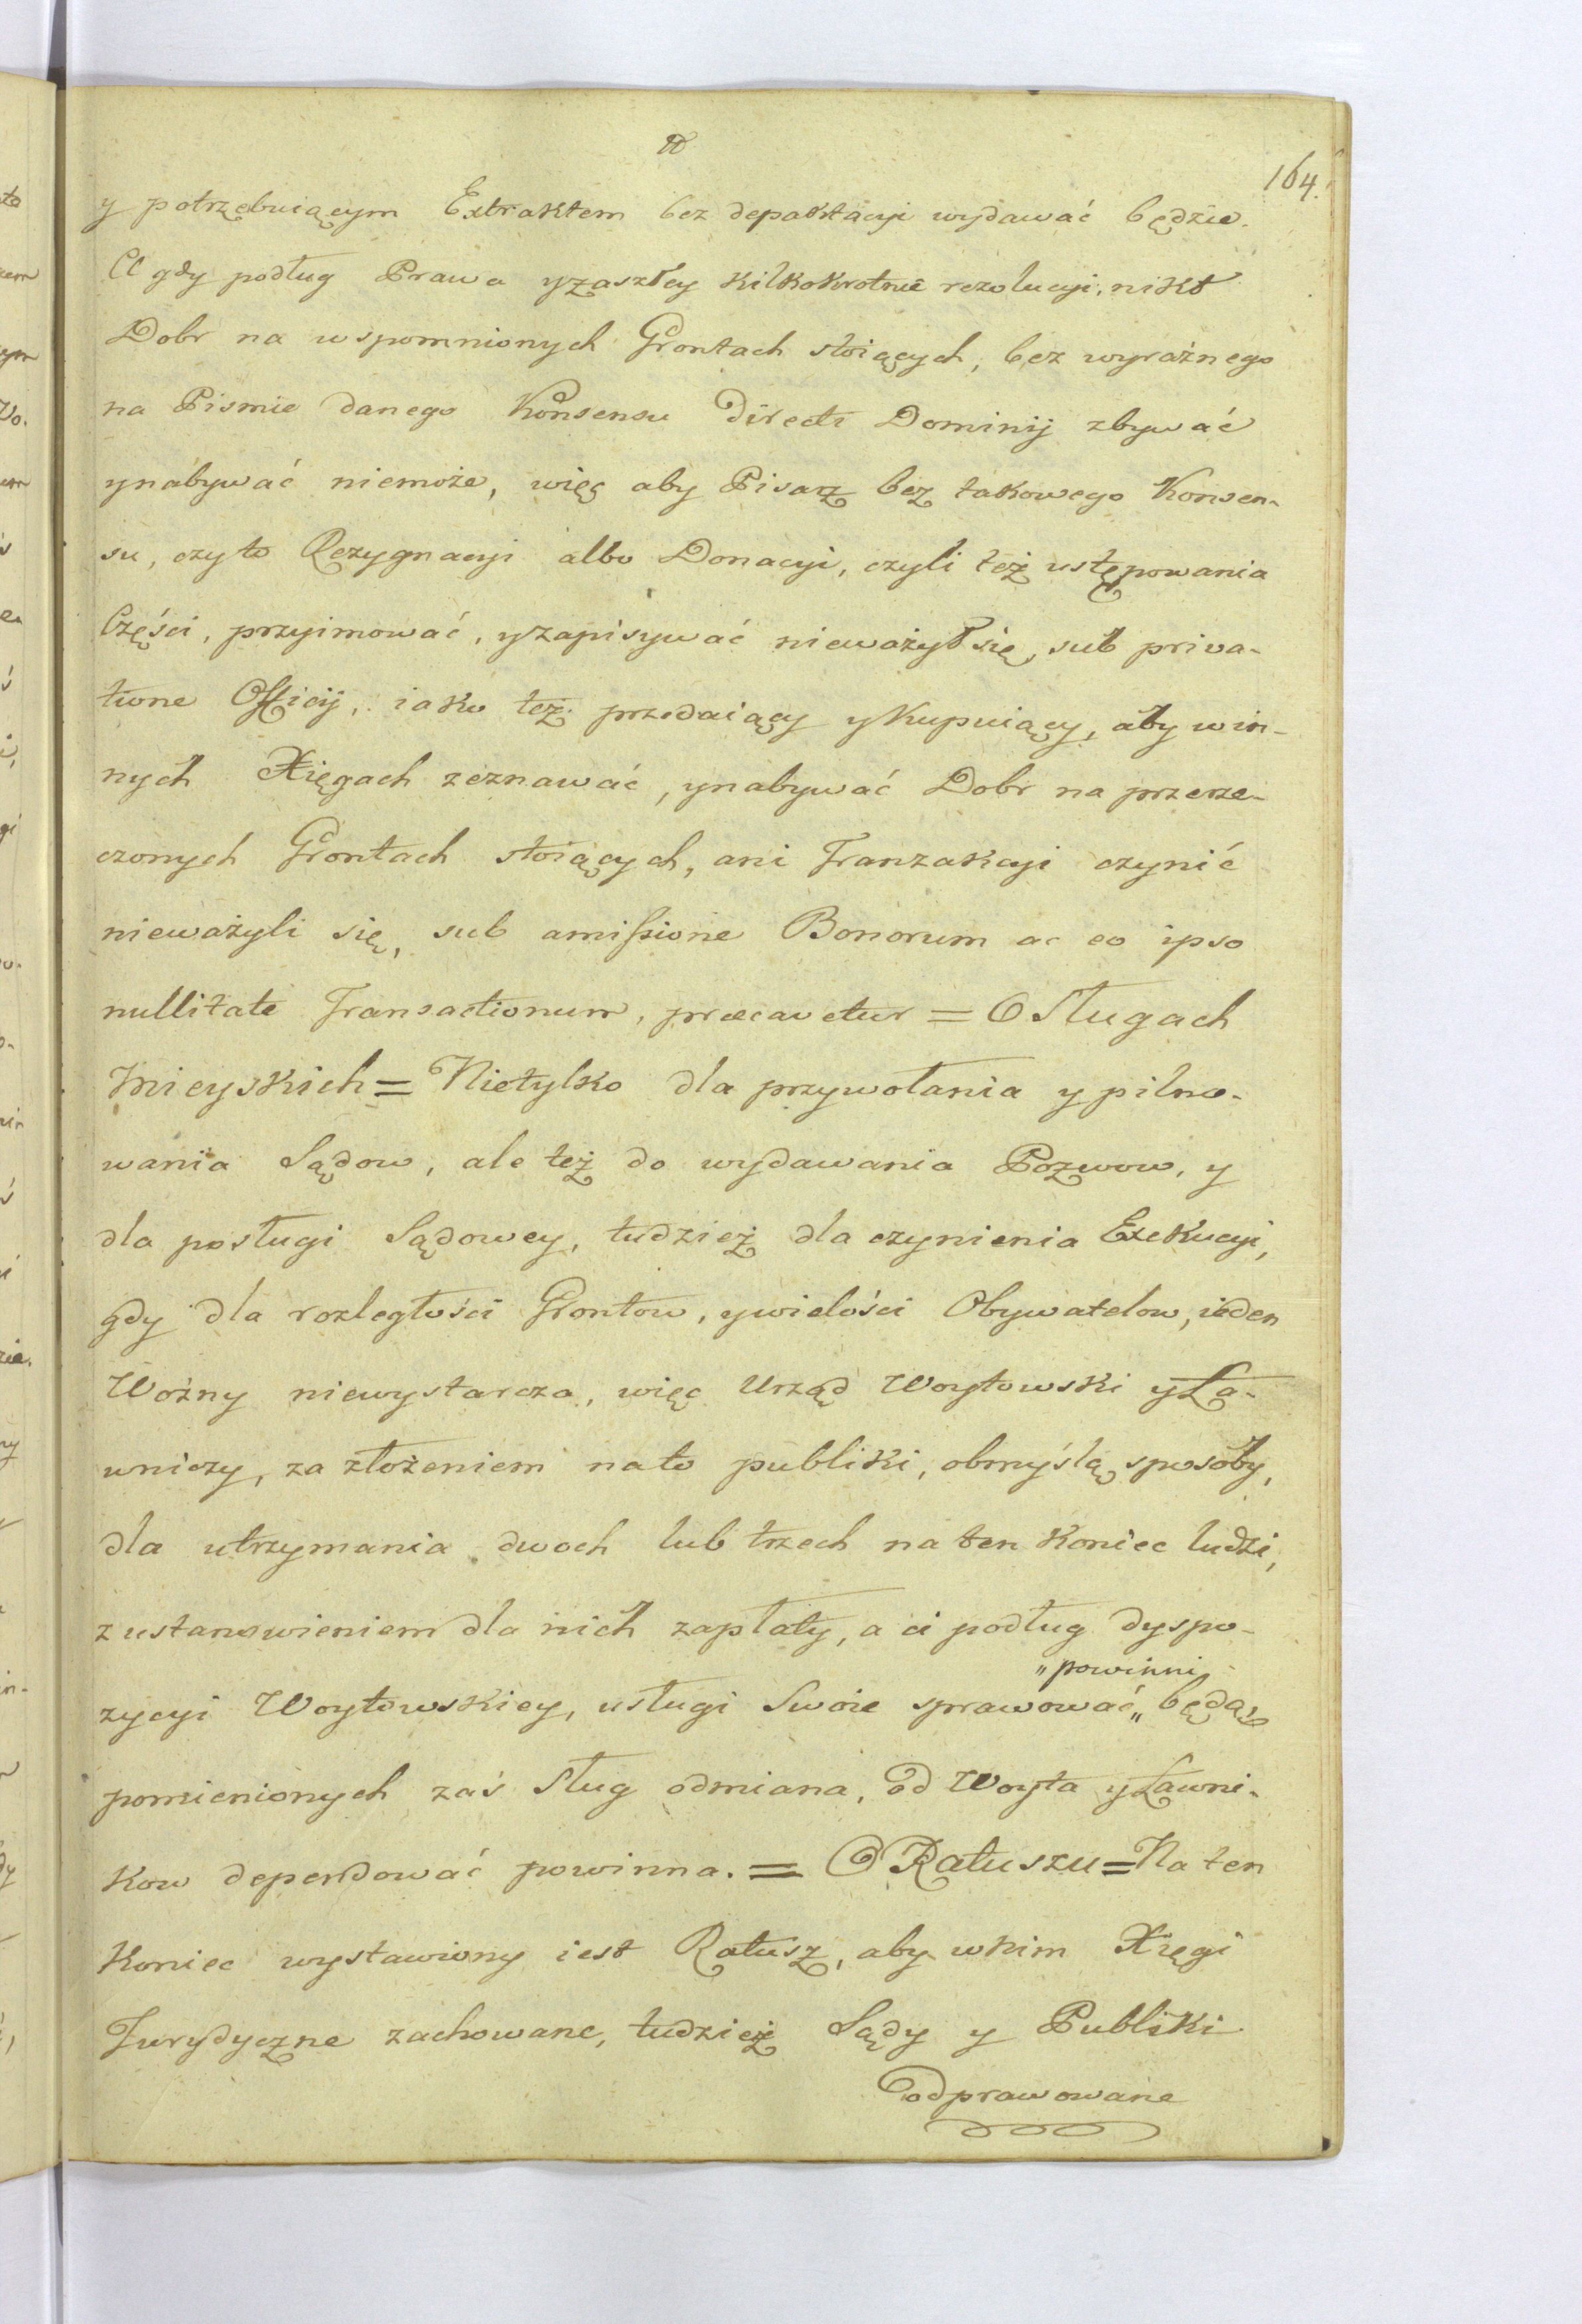 164.
y potrzębuiącym Extraktem bez depaktacyi wydawać będzie.
A gdy podług Prawa y zaszłey kilkokrotnie rezolucyi, nikt
Dobr na wspomnionych Grontach stoiących, bez wyraźnego
na Pismie danego Konsensu Directi Dominij zbywać
y nabywać niemoże, więc aby Pisarz bez takowego Konsen-
su, czy to Rezygnacyi albo Donacyi, czyli też ustępowania
Części, przyimować, y zapisywać nieważył się, sub priva-
tione Officij, iako też przedaiący y Kupuiący, aby w in-
nych Xięgach zeznawać, y nabywać Dobr na przerze-
czonych Grontach stoiących, ani Tranzakcyi czynić
nieważyli się, sub amissione Bonorum ac eo ipso
nullitate Transactionum, præcavetur = O Sługach
Mieyskich = Nietylko dla przywołania y pilno-
wania Sądow, ale też do wydawania Pozwow, y
dla posługi Sądowey, tudzież dla czynienia Exekucyi,
gdy dla rozległości Grontow, y wielości Obywatelow, ieden
Woźny niewystarcza, więc Urząd Woytowski y Ła-
wniczy, za złożeniem na to publiki, obmyślą sposoby,
dla utrzymania dwoch lub trzech na ten koniec ludzi,
z ustanowieniem dla nich zapłaty, a ci podług dyspo-
„powinni
zycyi Woytowskiey, usługi Swoie sprawować„ będą,
pomienionych zaś Sług odmiana, od Woyta y Ławni-
kow dependować powinna. = O Ratuszu = Na ten
Koniec wystawiony iest Ratusz, aby w nim Xięgi
Jurydyczne zachowane, tudzież Sądy y Publiki
odprawowane